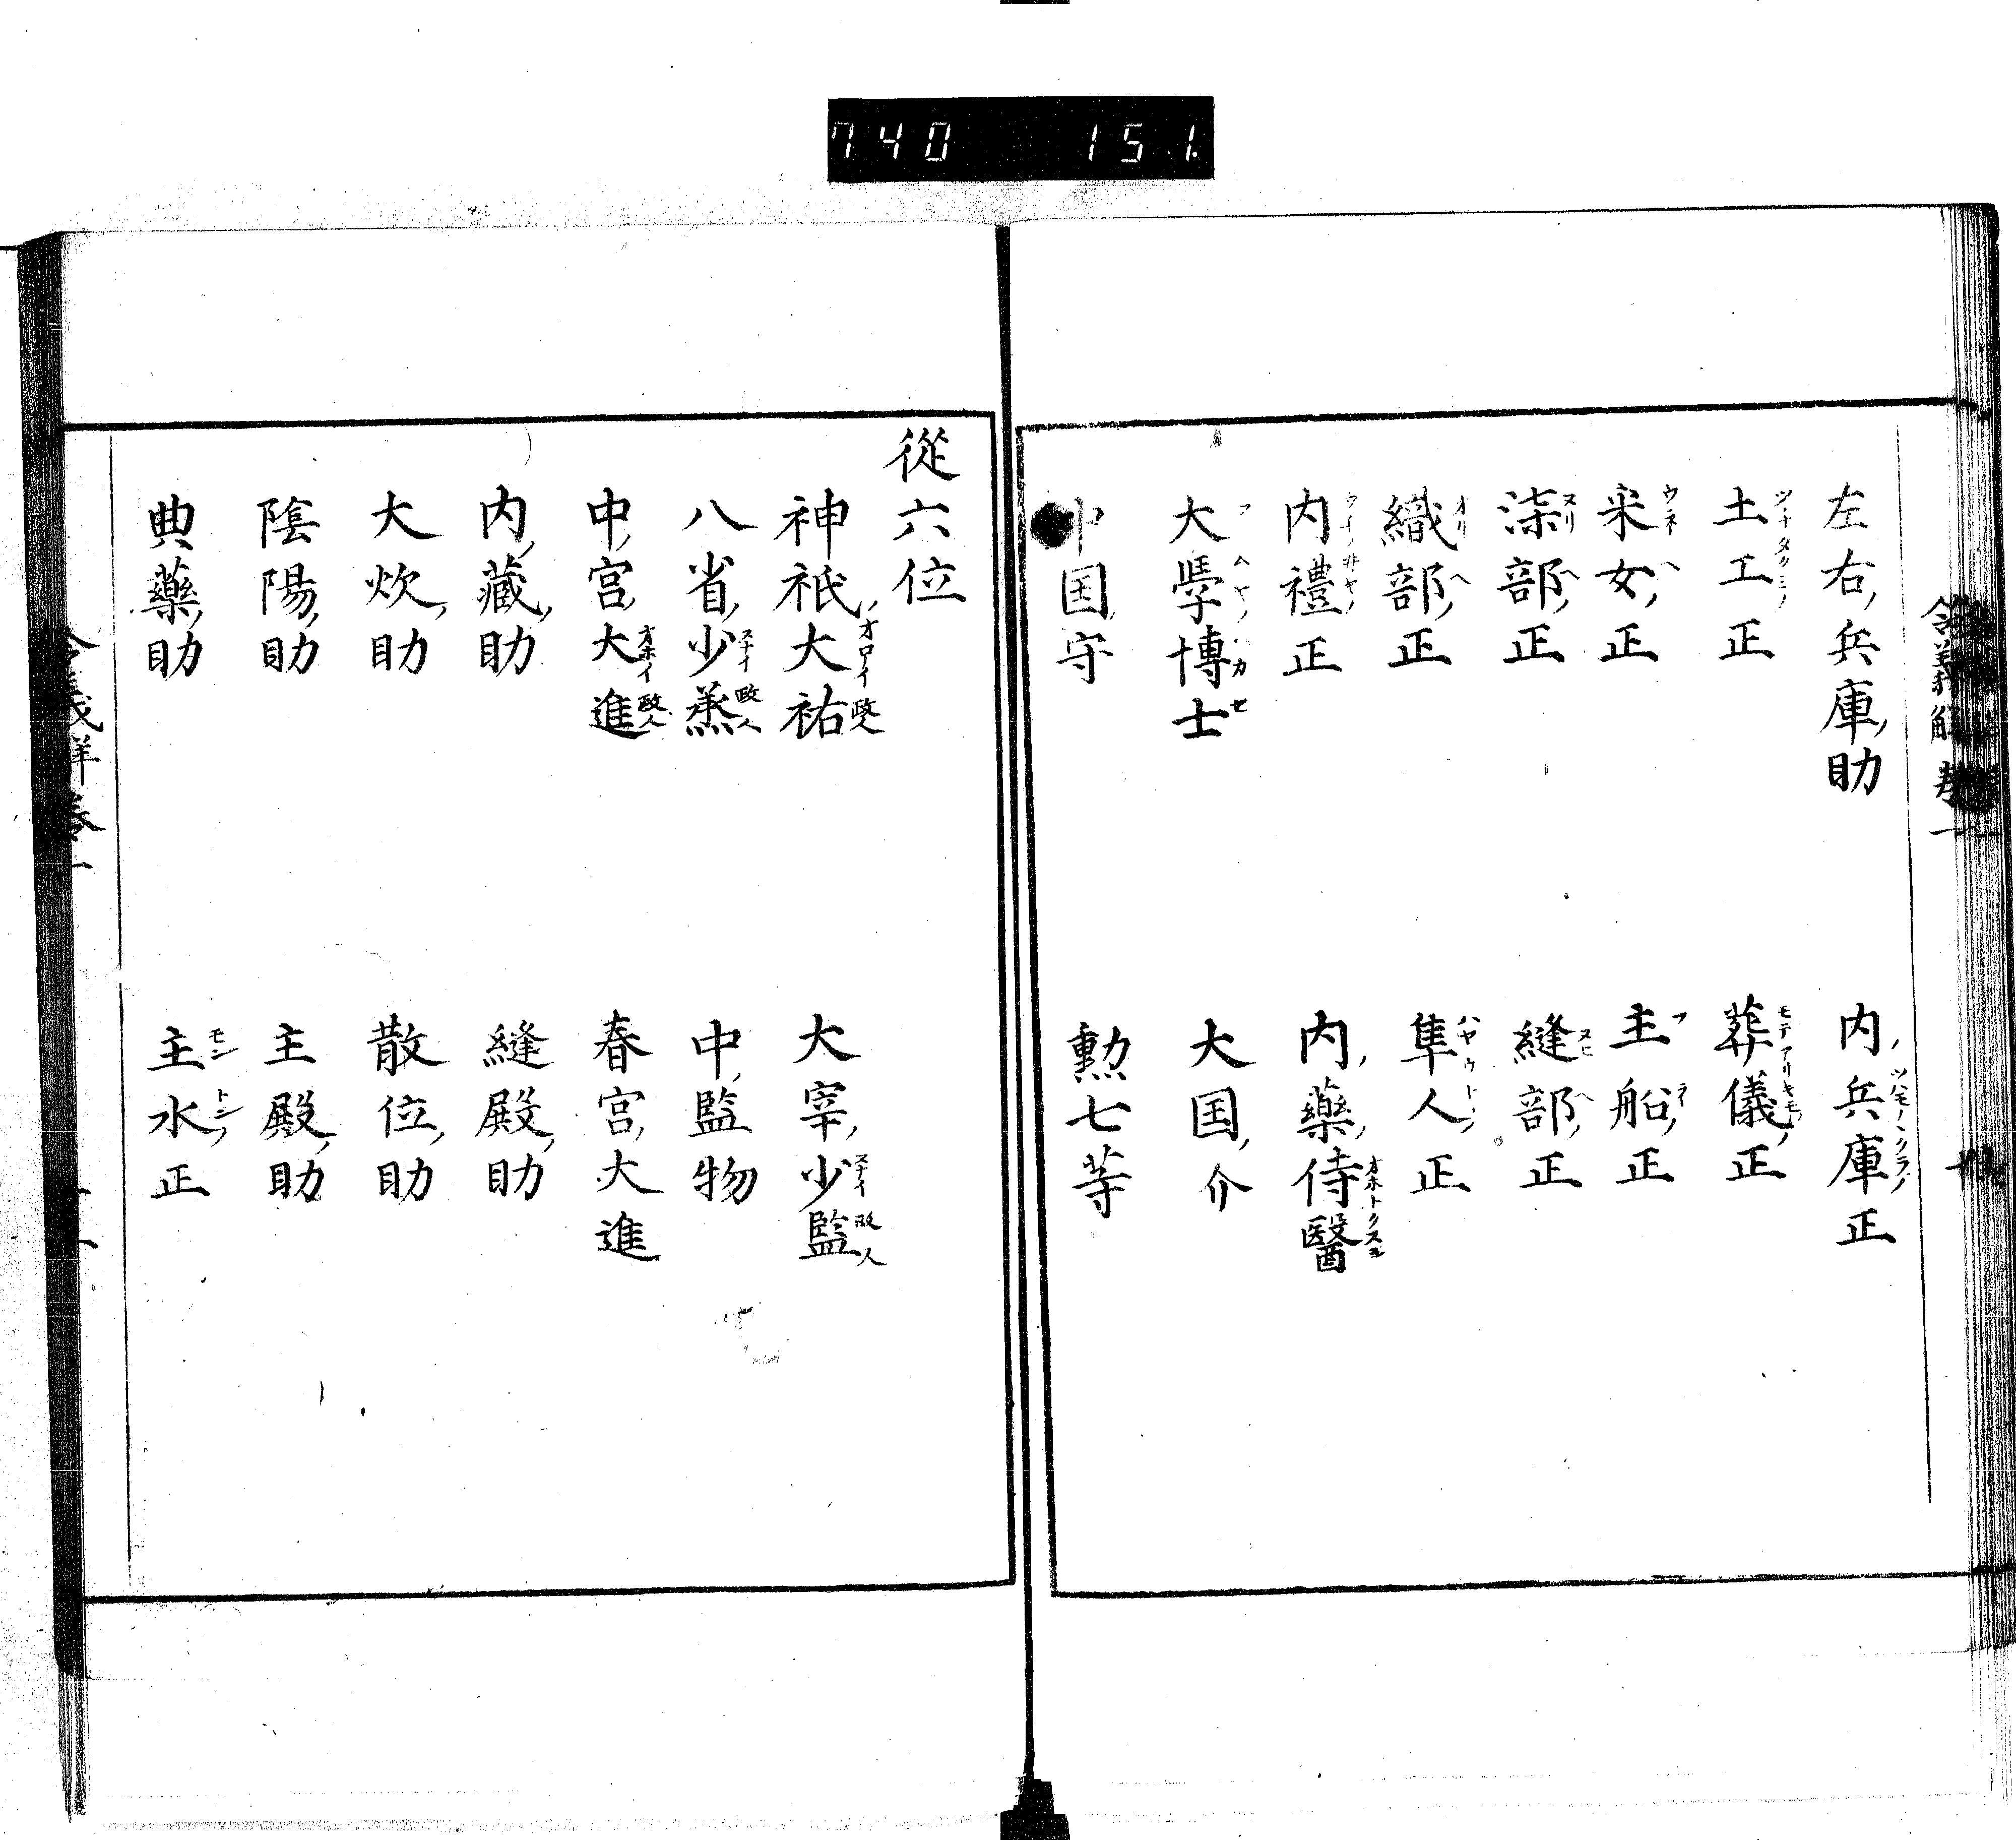 740 151
左右兵庫助 内兵庫正
土工正 葬儀正
采女正 主船正
漆部正 縫部正
織部正 隼人正
内禮正 内藥侍醫
大學博士 大国介
中国守 勲七等
從六位
神祇大祐 大宰少監
八省少蒸 中監物
中宮大進 春宮大進
内藏助 縫殿助
大炊助 散位助
陰陽助 主殿助
典藥助 主水正